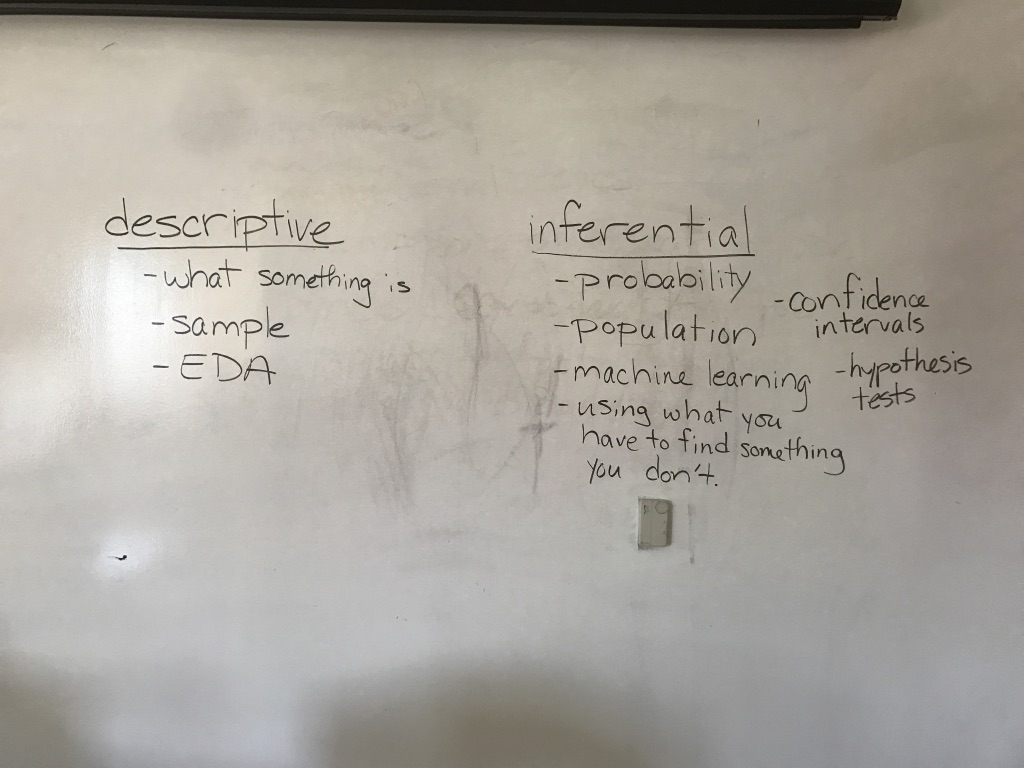 descriptive
- what something is
- sample
- EDA
inferential
- probability
- population
- machine learning
- using what you
have to find something
you don't.
- confidence
intervals
- hypothesis
tests